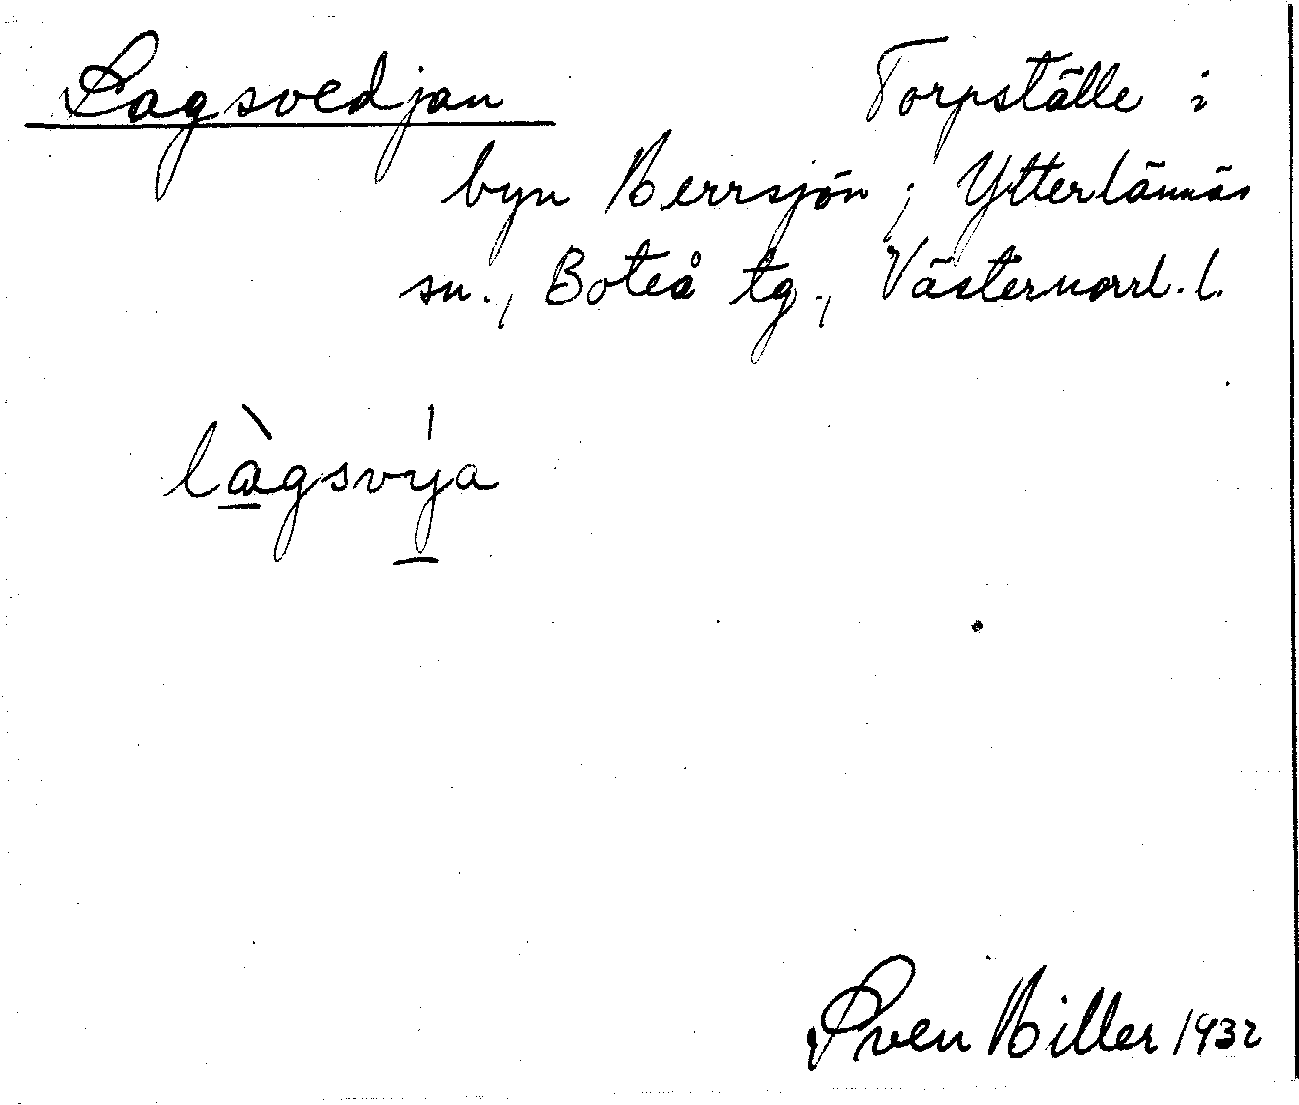 Lagsvedjan Torpställe i
byn Berrsjön, Ytterlännäs
sn., Boteå tg., Västernorrl. l.
làgsvýa
Sven Biller 1932